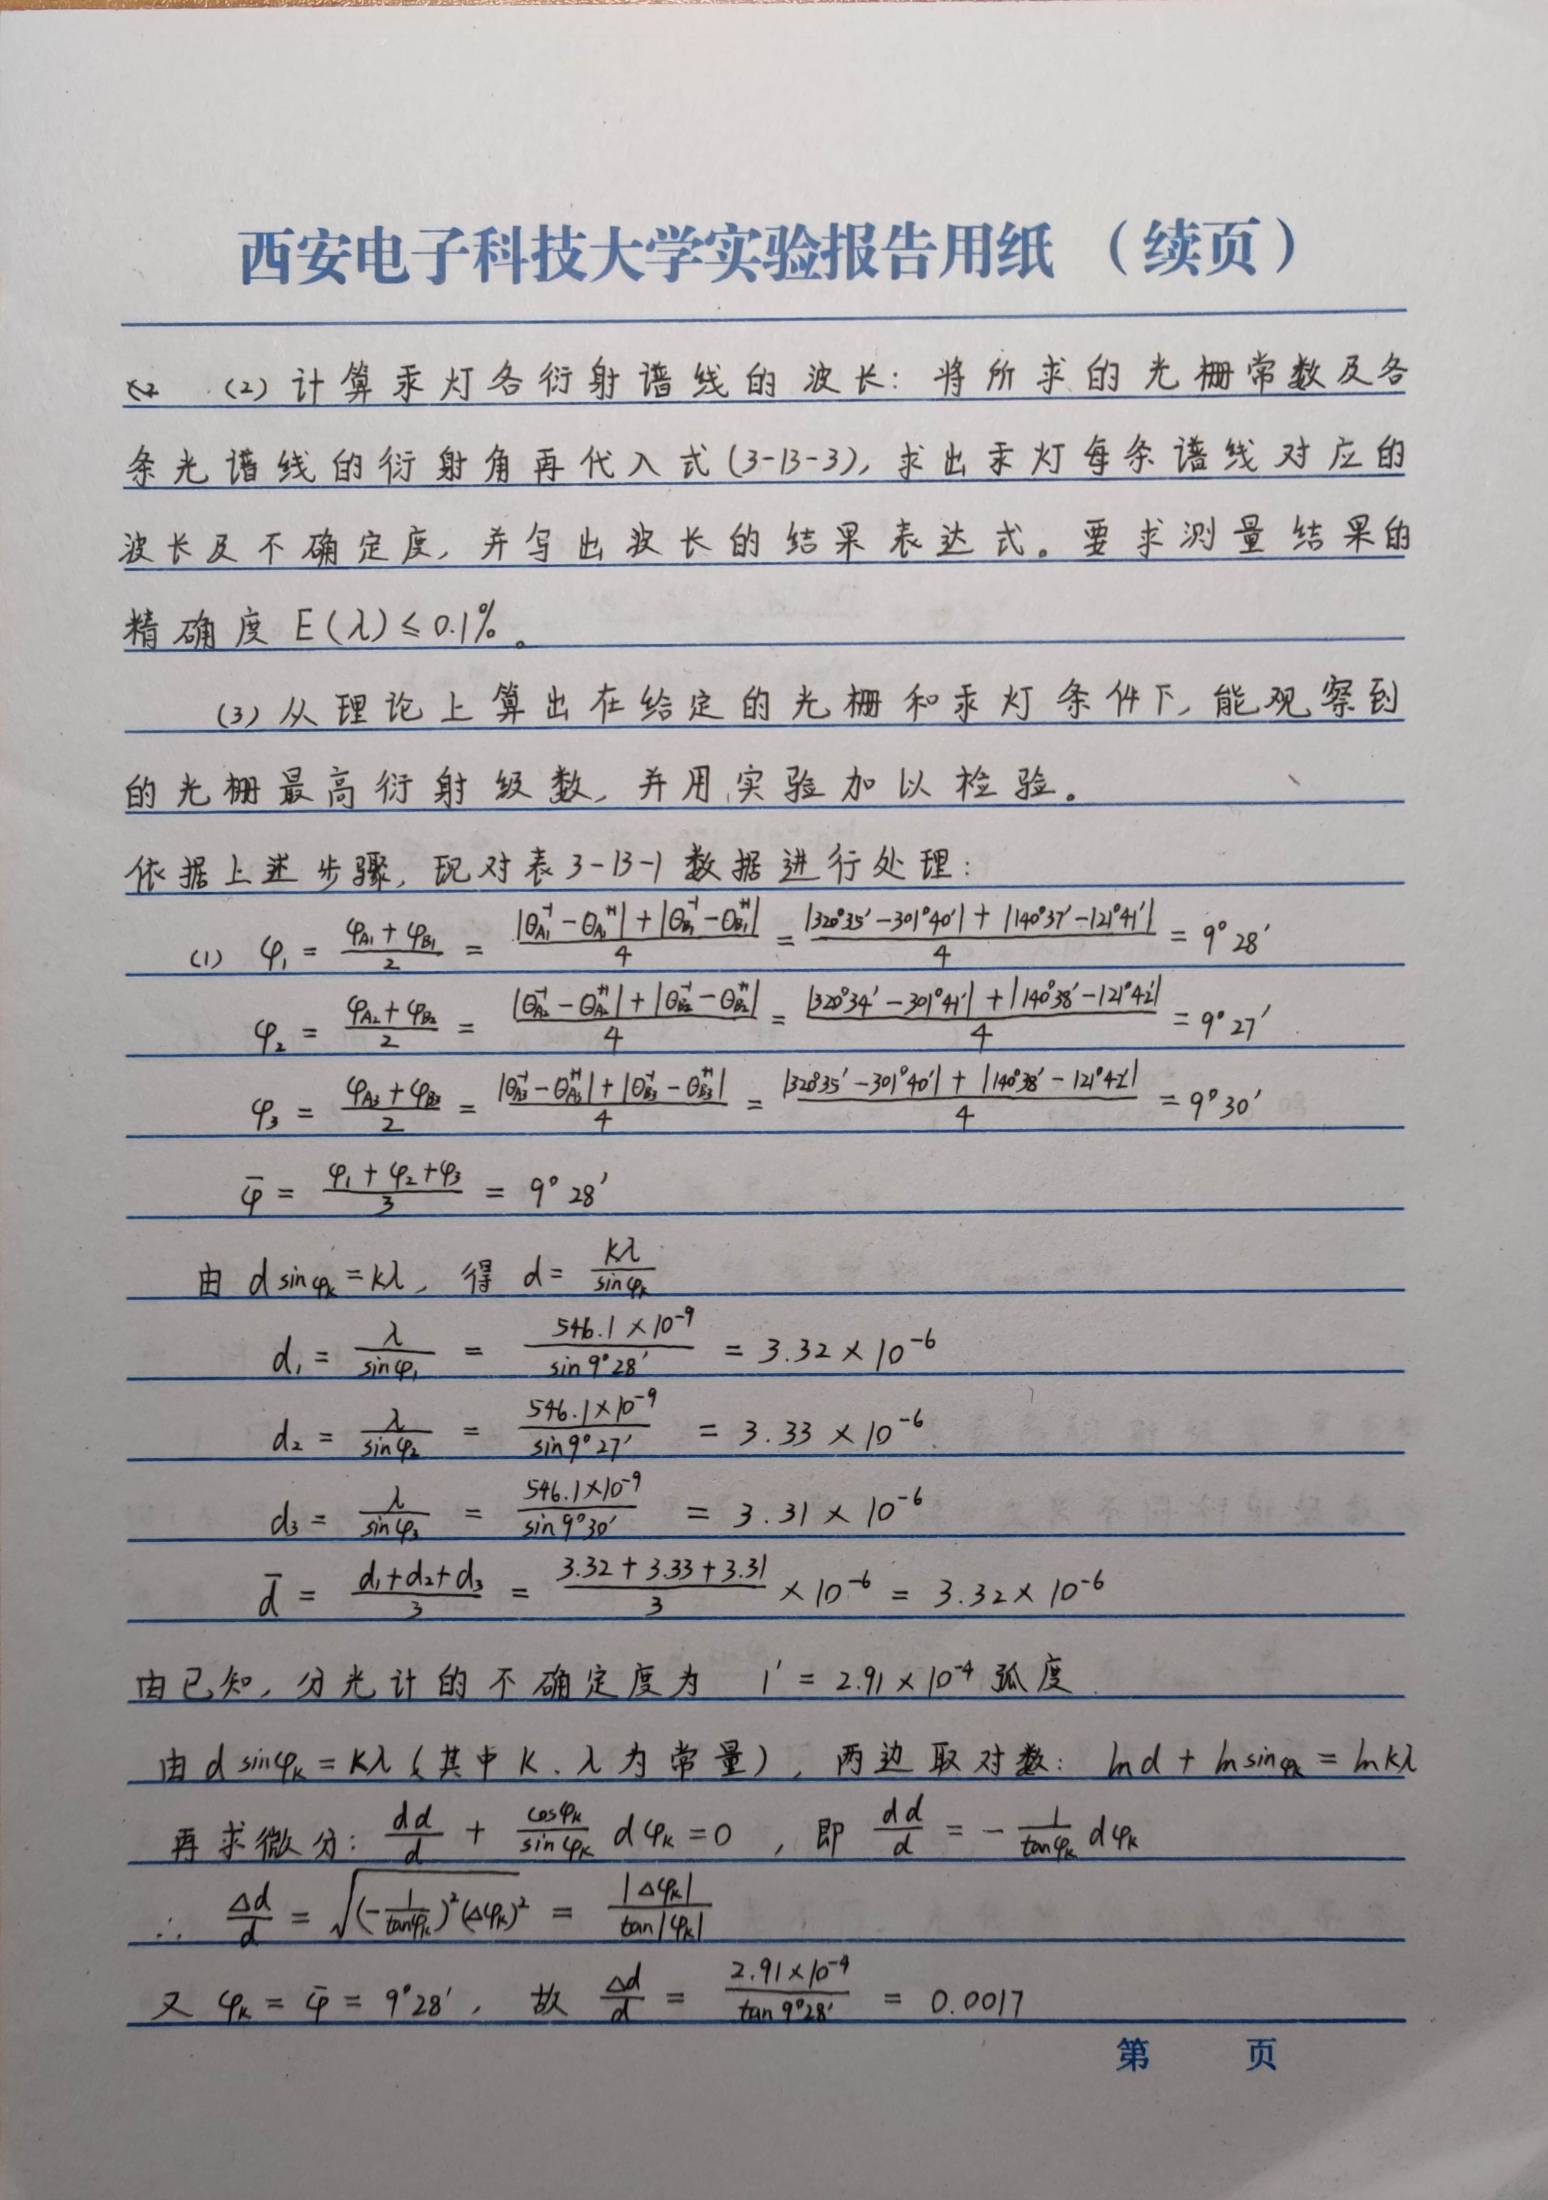 西安电子科技大学实验报告用纸 （续页）
(2) 计算汞灯各衍射谱线的波长：将所求的光栅常数及各
条光谱线的衍射角再代入式(3-13-3), 求出汞灯每条谱线对应的
波长及不确定度, 并写出波长的结果表达式。要求测量结果的
精确度 E(λ)≤0.1%。
(3) 从理论上算出在给定的光栅和汞灯条件下, 能观察到
的光栅最高衍射级数, 并用实验加以检验。
依据上述步骤, 现对表3-13-1数据进行处理：
(1) φ₁ = (φA₁ + φB₁)/2 = (|θA₁⁻¹ - θA₁⁺¹| + |θB₁⁻¹ - θB₁⁺¹|)/4 = (|320°35′ - 301°40′| + |140°37′ - 121°41′|)/4 = 9°28′
φ₂ = (φA₂ + φB₂)/2 = (|θA₂⁻¹ - θA₂⁺¹| + |θB₂⁻¹ - θB₂⁺¹|)/4 = (|320°34′ - 301°41′| + |140°38′ - 121°42′|)/4 = 9°27′
φ₃ = (φA₃ + φB₃)/2 = (|θA₃⁻¹ - θA₃⁺¹| + |θB₃⁻¹ - θB₃⁺¹|)/4 = (|320°35′ - 301°40′| + |140°38′ - 121°42′|)/4 = 9°30′
φ̄ = (φ₁ + φ₂ + φ₃)/3 = 9°28′
由 d sinφₖ = kλ, 得 d = kλ/sinφₖ
d₁ = λ/sinφ₁ = (546.1×10⁻⁹)/(sin9°28′) = 3.32×10⁻⁶
d₂ = λ/sinφ₂ = (546.1×10⁻⁹)/(sin9°27′) = 3.33×10⁻⁶
d₃ = λ/sinφ₃ = (546.1×10⁻⁹)/(sin9°30′) = 3.31×10⁻⁶
d̄ = (d₁+d₂+d₃)/3 = (3.32+3.33+3.31)/3 ×10⁻⁶ = 3.32×10⁻⁶
由已知, 分光计的不确定度为 1′ = 2.91×10⁻⁴ 弧度
由 d sinφₖ = kλ (其中 k、λ为常量), 两边取对数: ln d + ln sinφₖ = ln kλ
再求微分: dd/d + (cosφₖ/sinφₖ) dφₖ = 0 , 即 dd/d = -(1/tanφₖ) dφₖ
∴ Δd/d = √((-1/tanφₖ)²(Δφₖ)²) = |Δφₖ|/tan|φₖ|
又 φₖ = φ̄ = 9°28′, 故 Δd/d = (2.91×10⁻⁴)/(tan9°28′) = 0.0017
第 页